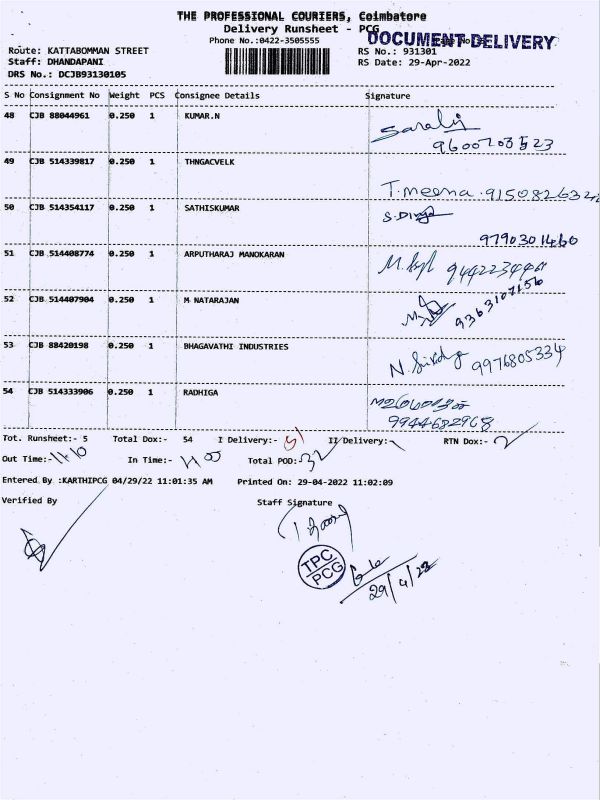 THE PROFESSIONAL COURIERS, Coimbatore
Delivery Runsheet - PCG
DOCUMENT DELIVERY
Phone No.:0422-3505555
Route: KATTABOMMAN STREET
RS No.: 931301
Staff: DHANDAPANI
RS Date: 29-Apr-2022
DRS No.: DCJB93130105
S No Consignment No Weight PCS Consignee Details Signature
48 CJB 88044961 0.250 1 KUMAR.N
9600703523
49 CJB 514339817 0.250 1 THNGACVELK
T.meena. 9150826342
50 CJB 514354117 0.250 1 SATHISKUMAR S.Divya
9790301460
51 CJB 514408774 0.250 1 ARPUTHARAJ MANOKARAN
52 CJB 514407904 0.250 1 M NATARAJAN 9363107156
53 CJB 88420198 0.250 1 BHAGAVATHI INDUSTRIES
9976805334
54 CJB 514333906 0.250 1 RADHIGA
9944682968
Tot. Runsheet:- 5 Total Dox:- 54 I Delivery:- 51 II Delivery:- RTN Dox:- 2
Out Time:- 11.10 In Time:- Total POD:- 32
Entered By :KARTHIPCG 04/29/22 11:01:35 AM Printed On: 29-04-2022 11:02:09
Verified By Staff Signature
TPC
PCG
29/4/22